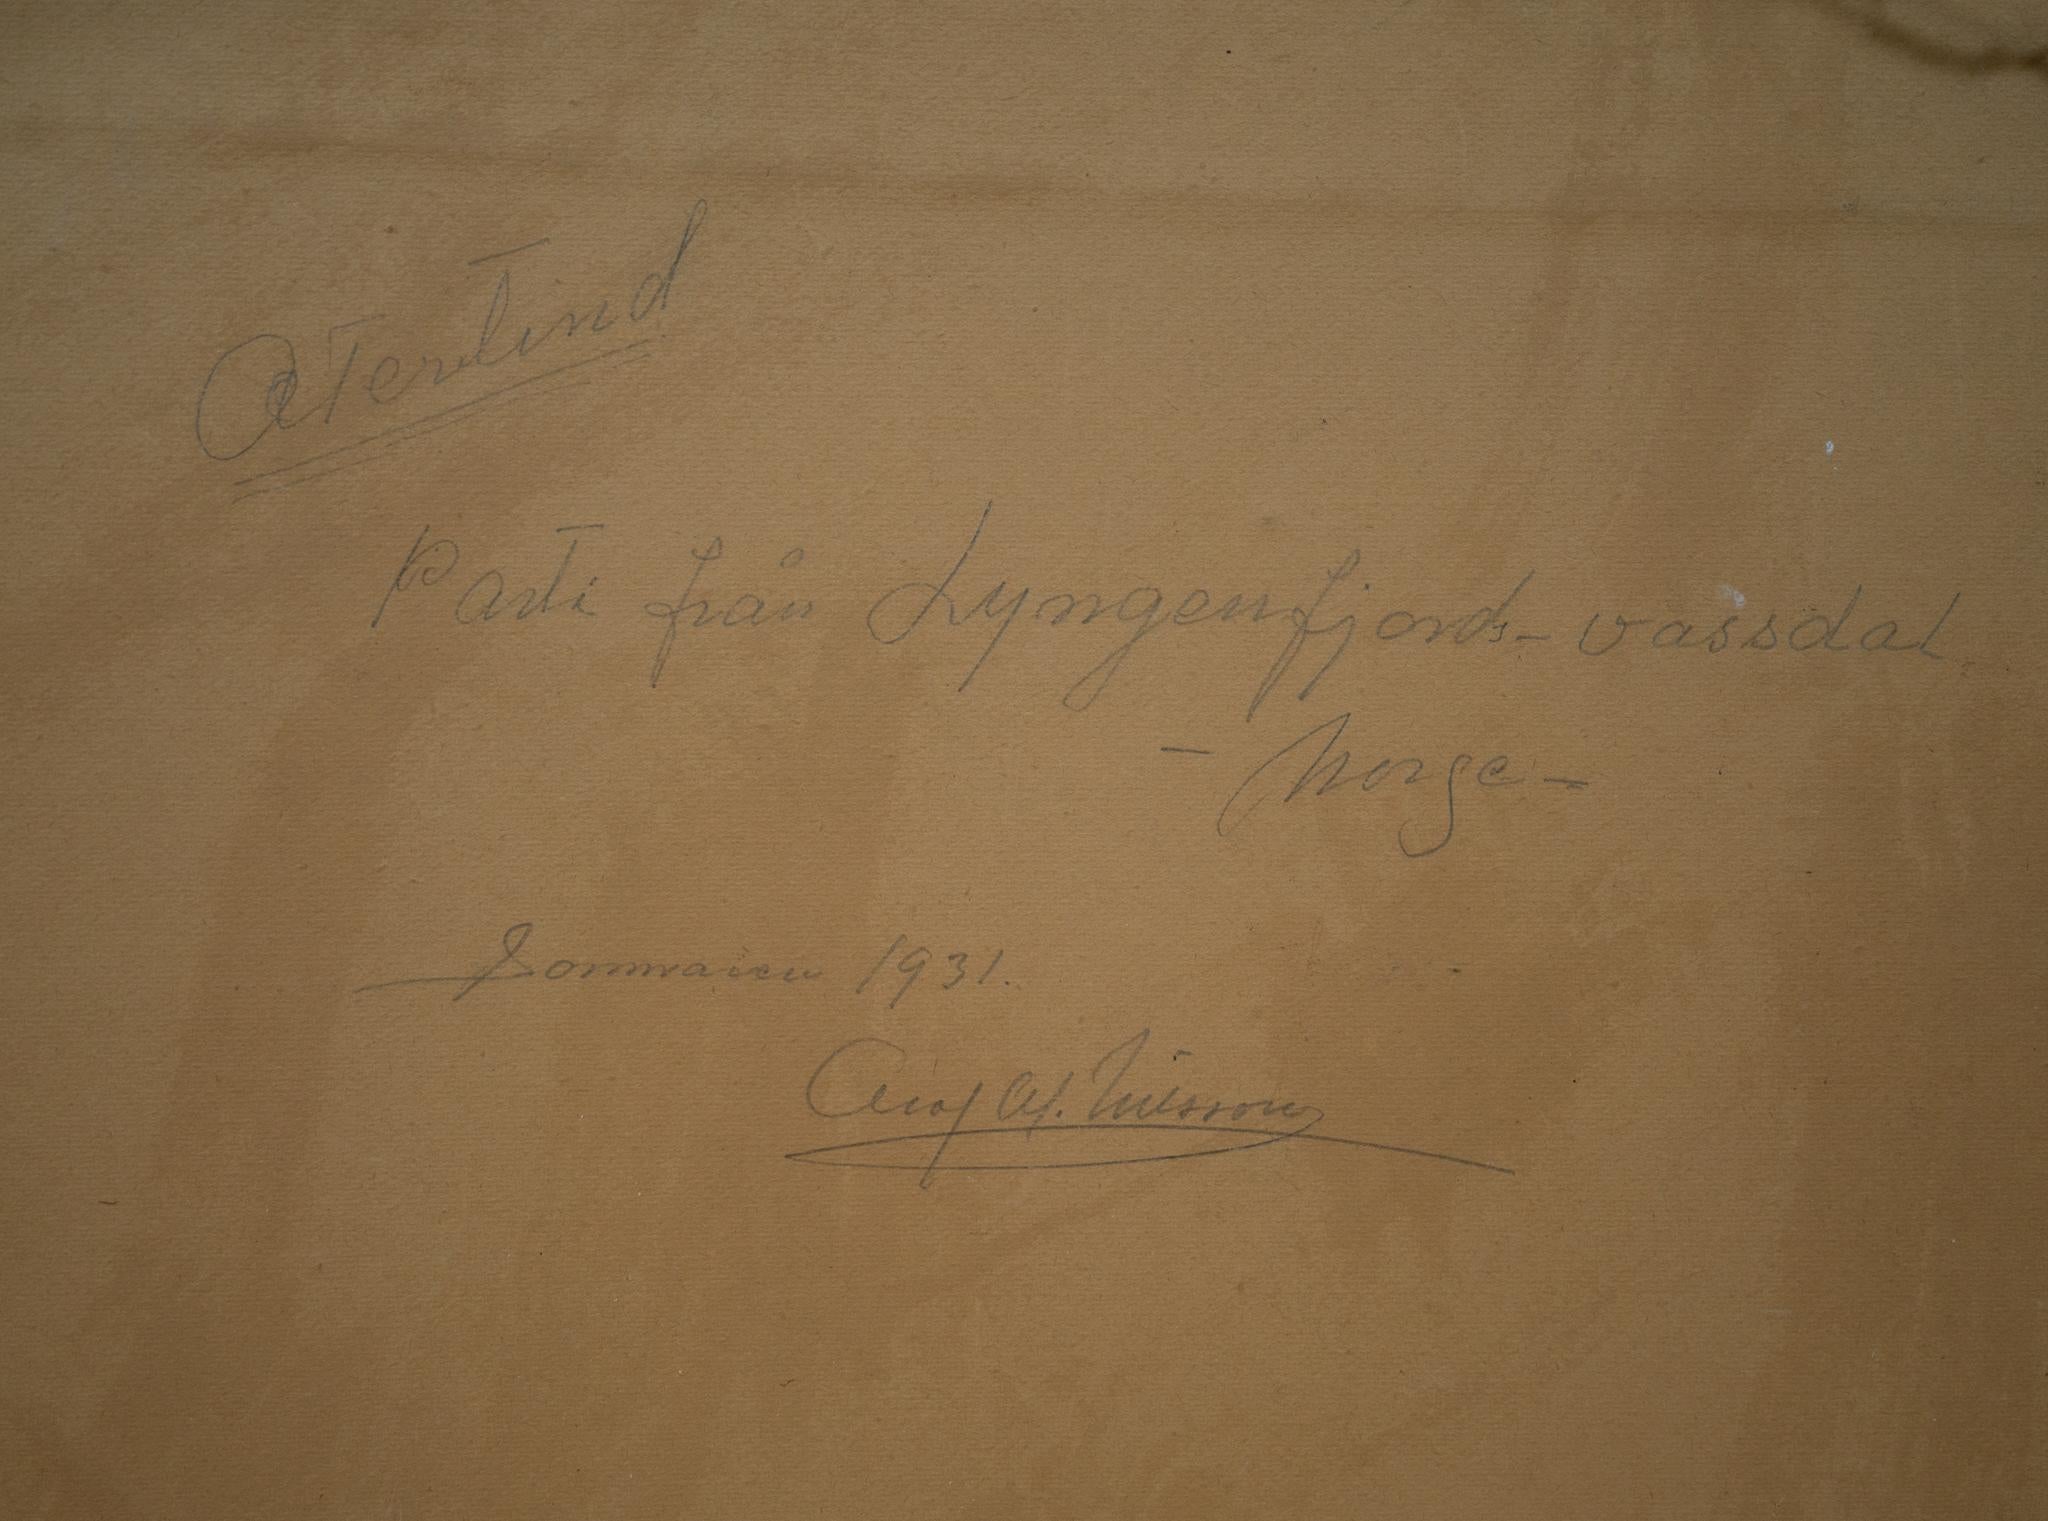 Otertind
Parti från Lyngenfjords- vassdal
- Norge -
Sommaren 1931.
Olof At. Nilsson